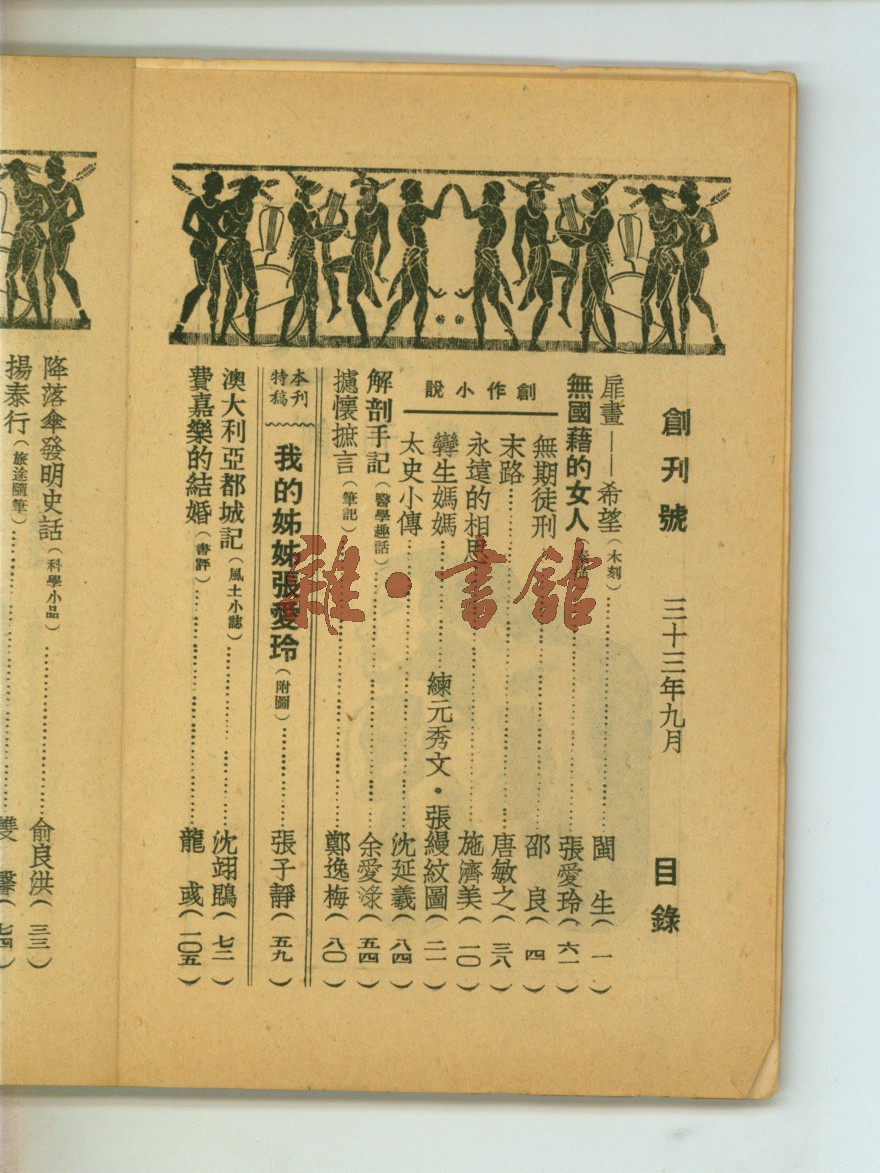 創刊號 三十三年九月 目錄
扉畫——希望（木刻）………閩生（一）
無國藉的女人………張愛玲（六一）
創作小說
無期徒刑………邵良（四）
末路………唐敏之（三八）
永遠的相思………施濟美（一〇）
孿生媽媽………練元秀文・張縵紋圖（二一）
太史小傳………沈延義（八四）
解剖手記（醫學趣話）………余愛淥（五四）
攄懷摭言（筆記）………鄭逸梅（八〇）
本刊特稿
我的姊姊張愛玲（附圖）………張子靜（五九）
澳大利亞都城記（風土小誌）………沈翊鵾（七二）
費嘉樂的結婚（書評）………龍彧（一〇五）
降落傘發明史話（科學小品）………俞良洪（三三）
揚泰行（旅途隨筆）………雙馨（七四）
雜・書館